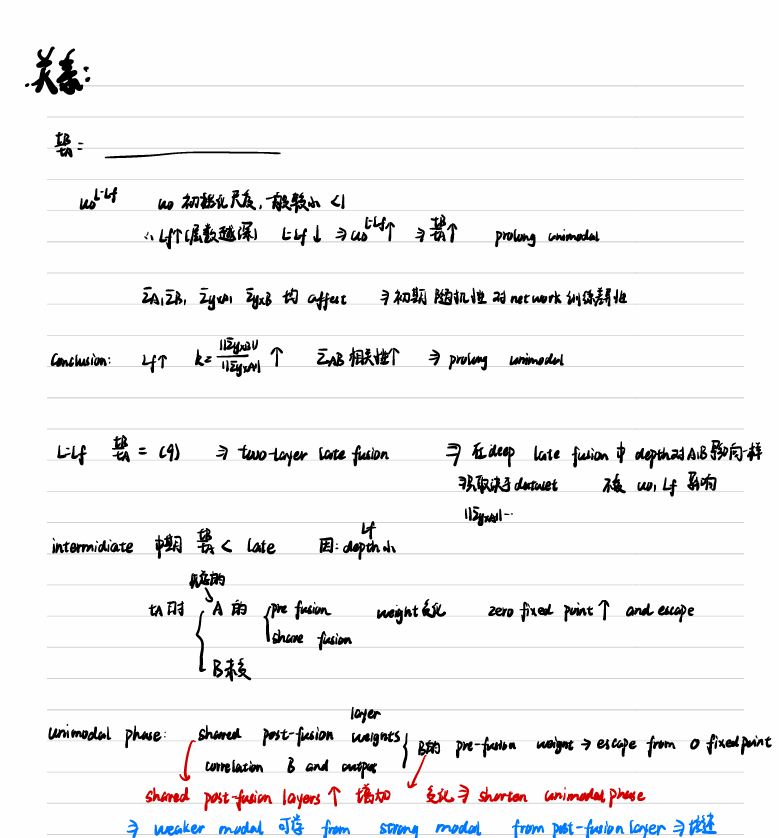 关系:
tB/tA = ______
u₀^(L-Lf) u₀ 初始化尺度, 一般较小 <1
∴ Lf↑(层数越深) L-Lf↓ ⇒ u₀^(L-Lf)↑ ⇒ tB/tA↑ prolong unimodal
ΣA,ΣB, ΣyxA, ΣyxB 均 affect ⇒ 初期 随机性 对 network 训练
Conclusion: Lf↑ k=||ΣyxB||/||ΣyxA||↑ ΣAB 相关性↑ ⇒ prolong unimodal
L=Lf tB/tA = (9) ⇒ two-layer late fusion ⇒ 在 deep late fusion 中 depth 对 A,B 影响一样
⇒只取决于 dataset 不受 u₀, Lf 影响
||ΣyxA||...
intermidiate 中期 tB/tA < late 因: Lf depth 小
优态的
tA 时 { A 的 { pre fusion weight 变化 zero fixed point ↑ and escape
share fusion
B 未变
layer
unimodal phase: shared post-fusion weights { B的 pre-fusion weight → escape from 0 fixed point
correlation B and output
shared post-fusion layers ↑ 增加 变化 ⇒ shorten unimodal phase
⇒ weaker modal 可学 from strong modal from post-fusion layer ⇒